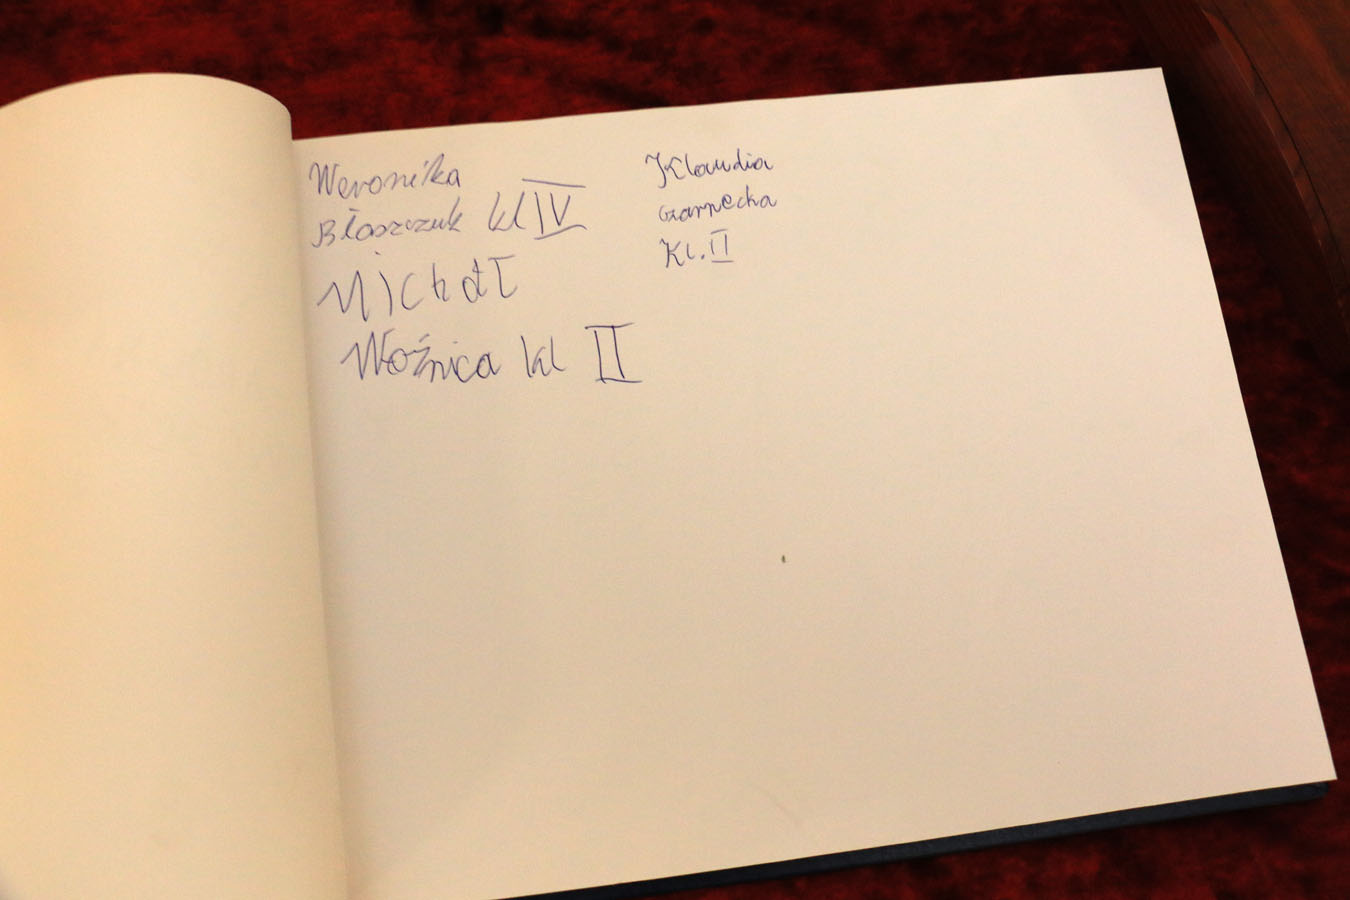 Weronika
Błaszczuk kl IV
Michał
Woźnica kl II
Klaudia
Czarnecka
Kl. II